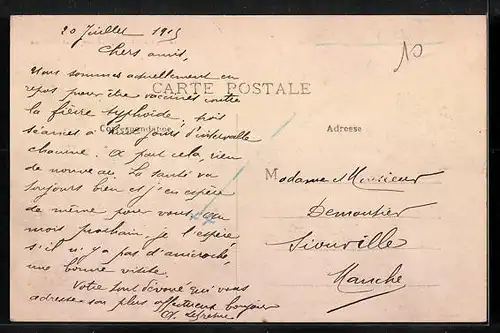 20 Juillet 1915
Chers amis,
Nous sommes actuellement en
repos pour être vaccinés contre
la fièvre typhoïde, trois
séances à jours d'intervalle
chacune. A part cela, rien
de nouveau. La santé va
toujours bien et j'en espère
de même pour vous. Au
mois prochain, je l'espère
s'il n'y a pas d'anicroche,
une bonne visite.
Votre tout dévoué qui vous
adresse son plus affectueux bonjour
CARTE POSTALE
Correspondance
Adresse
10
Madame et Monsieur
Demontier
Siouville
Manche